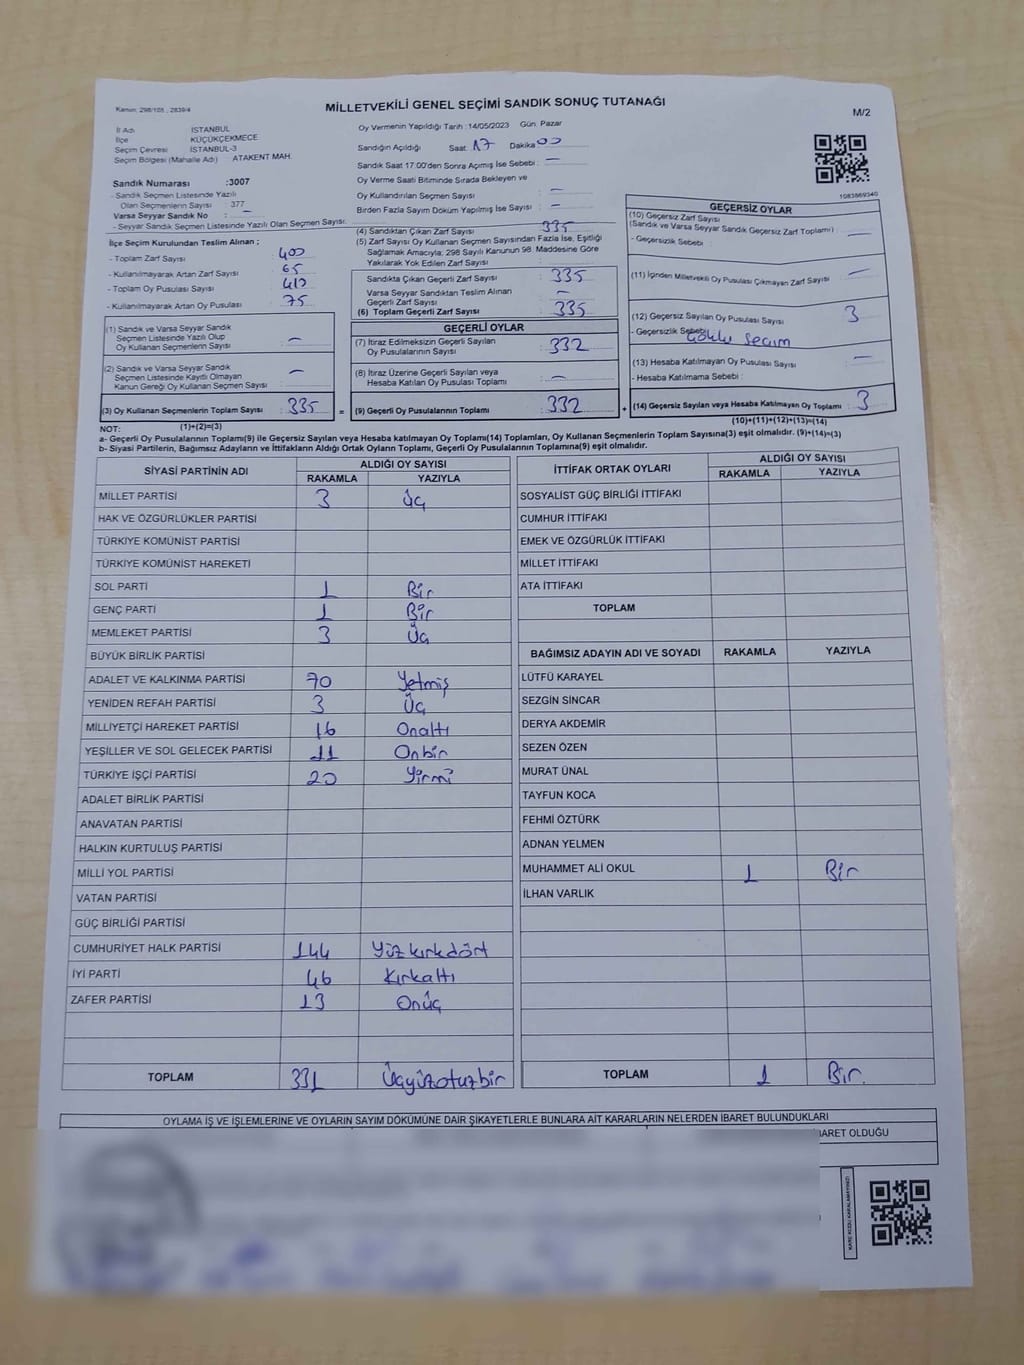 Kanun: 298/105 , 2839/4
MİLLETVEKİLİ GENEL SEÇİMİ SANDIK SONUÇ TUTANAĞI
M/2
İl Adı İSTANBUL
İlçe KÜÇÜKÇEKMECE
Seçim Çevresi İSTANBUL-3
Seçim Bölgesi (Mahalle Adı) ATAKENT MAH.
Sandık Numarası :3007
- Sandık Seçmen Listesinde Yazılı
Olan Seçmenlerin Sayısı : 377
Varsa Seyyar Sandık No : –
- Seyyar Sandık Seçmen Listesinde Yazılı Olan Seçmen Sayısı:
İlçe Seçim Kurulundan Teslim Alınan ;
- Toplam Zarf Sayısı 400
- Kullanılmayarak Artan Zarf Sayısı 65
- Toplam Oy Pusulası Sayısı 410
- Kullanılmayarak Artan Oy Pusulası 75
(1) Sandık ve Varsa Seyyar Sandık
Seçmen Listesinde Yazılı Olup
Oy Kullanan Seçmenlerin Sayısı –
(2) Sandık ve Varsa Seyyar Sandık
Seçmen Listesinde Kayıtlı Olmayan
Kanun Gereği Oy Kullanan Seçmen Sayısı –
(3) Oy Kullanan Seçmenlerin Toplam Sayısı : 335 =
(1)+(2)=(3)
Oy Vermenin Yapıldığı Tarih :14/05/2023 Gün: Pazar
Sandığın Açıldığı Saat 17 Dakika 00
Sandık Saat 17:00'den Sonra Açımış İse Sebebi : –
Oy Verme Saati Bitiminde Sırada Bekleyen ve
Oy Kullandırılan Seçmen Sayısı : –
Birden Fazla Sayım Döküm Yapılmış İse Sayısı : –
(4) Sandıktan Çıkan Zarf Sayısı : 335
(5) Zarf Sayısı Oy Kullanan Seçmen Sayısından Fazla İse, Eşitliği
Sağlamak Amacıyla; 298 Sayılı Kanunun 98. Maddesine Göre
Yakılarak Yok Edilen Zarf Sayısı :
Sandıkta Çıkan Geçerli Zarf Sayısı : 335
Varsa Seyyar Sandıktan Teslim Alınan
Geçerli Zarf Sayısı : –
(6) Toplam Geçerli Zarf Sayısı : 335
GEÇERLİ OYLAR
(7) İtiraz Edilmeksizin Geçerli Sayılan
Oy Pusulalarının Sayısı : 332
(8) İtiraz Üzerine Geçerli Sayılan veya
Hesaba Katılan Oy Pusulası Toplamı : –
(9) Geçerli Oy Pusulalarının Toplamı : 332 +
1083869340
GEÇERSİZ OYLAR
(10) Geçersiz Zarf Sayısı
(Sandık ve Varsa Seyyar Sandık Geçersiz Zarf Toplamı) : –
- Geçersizlik Sebebi :
(11) İçinden Milletvekili Oy Pusulası Çıkmayan Zarf Sayısı –
(12) Geçersiz Sayılan Oy Pusulası Sayısı 3
- Geçersizlik Sebebi: Çoklu seçim
(13) Hesaba Katılmayan Oy Pusulası Sayısı –
- Hesaba Katılmama Sebebi :
(14) Geçersiz Sayılan veya Hesaba Katılmayan Oy Toplamı : 3
(10)+(11)+(12)+(13)=(14)
NOT:
a- Geçerli Oy Pusulalarının Toplamı(9) ile Geçersiz Sayılan veya Hesaba katılmayan Oy Toplamı(14) Toplamları, Oy Kullanan Seçmenlerin Toplam Sayısına(3) eşit olmalıdır. (9)+(14)=(3)
b- Siyasi Partilerin, Bağımsız Adayların ve İttifakların Aldığı Ortak Oyların Toplamı, Geçerli Oy Pusulalarının Toplamına(9) eşit olmalıdır.
SİYASİ PARTİNİN ADI ALDIĞI OY SAYISI
RAKAMLA YAZIYLA
MİLLET PARTİSİ 3 Üç
HAK VE ÖZGÜRLÜKLER PARTİSİ
TÜRKİYE KOMÜNİST PARTİSİ
TÜRKİYE KOMÜNİST HAREKETİ
SOL PARTİ 1 Bir
GENÇ PARTİ 1 Bir
MEMLEKET PARTİSİ 3 Üç
BÜYÜK BİRLİK PARTİSİ
ADALET VE KALKINMA PARTİSİ 70 Yetmiş
YENİDEN REFAH PARTİSİ 3 Üç
MİLLİYETÇİ HAREKET PARTİSİ 16 Onaltı
YEŞİLLER VE SOL GELECEK PARTİSİ 11 Onbir
TÜRKİYE İŞÇİ PARTİSİ 20 Yirmi
ADALET BİRLİK PARTİSİ
ANAVATAN PARTİSİ
HALKIN KURTULUŞ PARTİSİ
MİLLİ YOL PARTİSİ
VATAN PARTİSİ
GÜÇ BİRLİĞİ PARTİSİ
CUMHURİYET HALK PARTİSİ 144 Yüzkırkdört
İYİ PARTİ 46 Kırkaltı
ZAFER PARTİSİ 13 Onüç
TOPLAM 331 Üçyüzotuzbir
İTTİFAK ORTAK OYLARI ALDIĞI OY SAYISI
RAKAMLA YAZIYLA
SOSYALİST GÜÇ BİRLİĞİ İTTİFAKI
CUMHUR İTTİFAKI
EMEK VE ÖZGÜRLÜK İTTİFAKI
MİLLET İTTİFAKI
ATA İTTİFAKI
TOPLAM
BAĞIMSIZ ADAYIN ADI VE SOYADI RAKAMLA YAZIYLA
LÜTFÜ KARAYEL
SEZGİN SİNCAR
DERYA AKDEMİR
SEZEN ÖZEN
MURAT ÜNAL
TAYFUN KOCA
FEHMİ ÖZTÜRK
ADNAN YELMEN
MUHAMMET ALİ OKUL 1 Bir
İLHAN VARLIK
TOPLAM 1 Bir.
OYLAMA İŞ VE İŞLEMLERİNE VE OYLARIN SAYIM DÖKÜMÜNE DAİR ŞİKAYETLERLE BUNLARA AİT KARARLARIN NELERDEN İBARET BULUNDUKLARI
İBARET OLDUĞU
KARE KODU KARALAMAYINIZ!